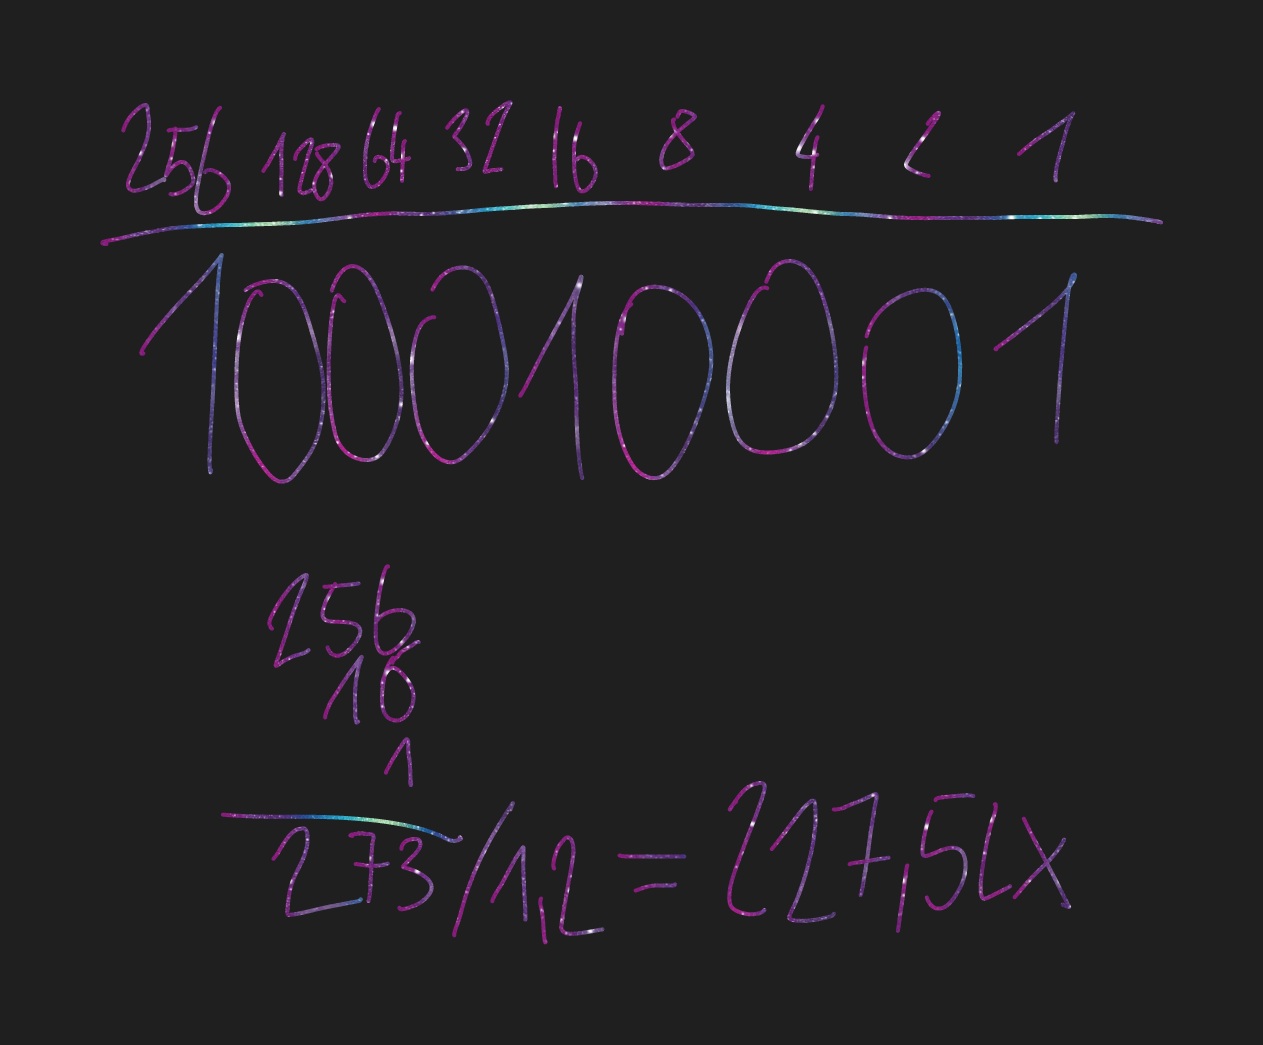 256 128 64 32 16 8 4 2 1
100010001
256
16
1
273/1,2 = 227,5Lx